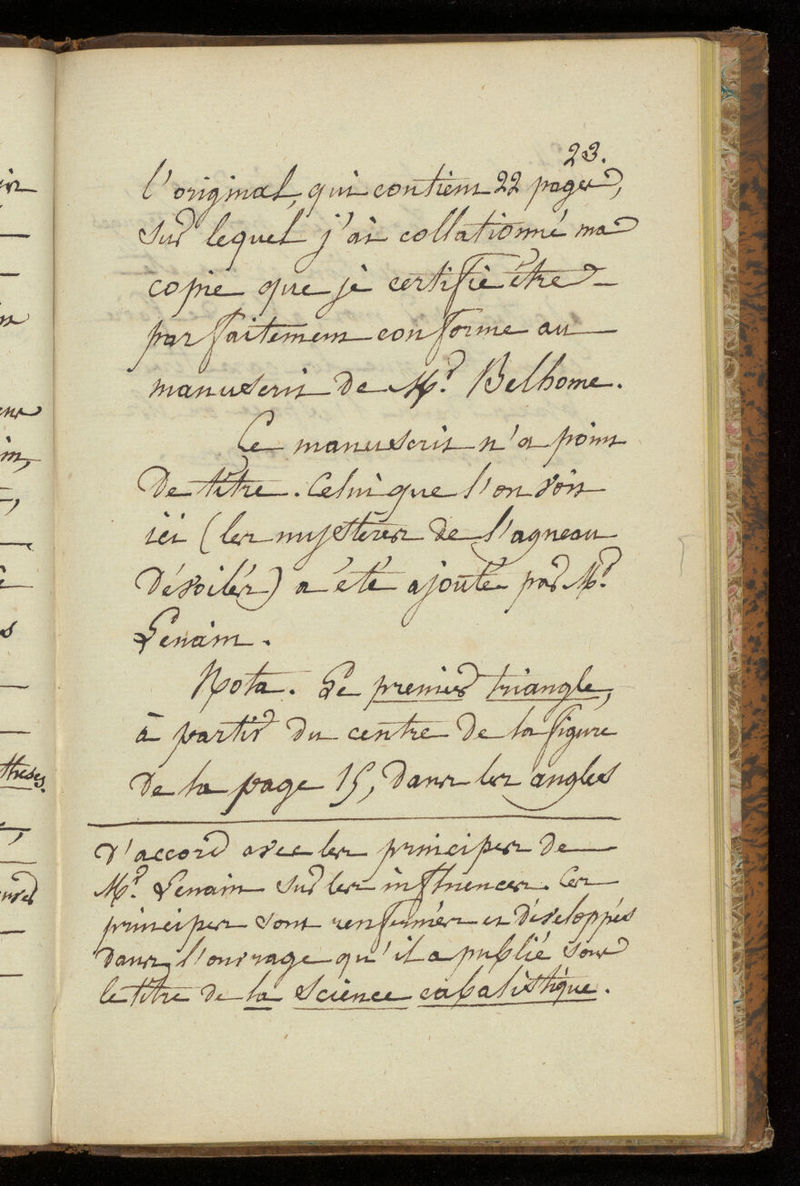 23.
l'original, qui contient 22 pages,
sur lequel j'ai collationné ma
copie que je certifie être
parfaitement conforme au
manuscrit de Mr. Belhome.
Ce manuscrit n'a point
de titre. Celui que l'on voit
ici (les mystères de l'agneau
dévoilés) a été ajouté par Mr.
Lenain.
Nota. Le premier triangle,
à partir du centre de la figure
de la page 15, dans les angles
d'accord avec les principes de
Mr. Lenain sur les influences. Ces
principes sont renfermés et développés
dans l'ouvrage qu'il a publié sous
le titre de la science cabalistique.